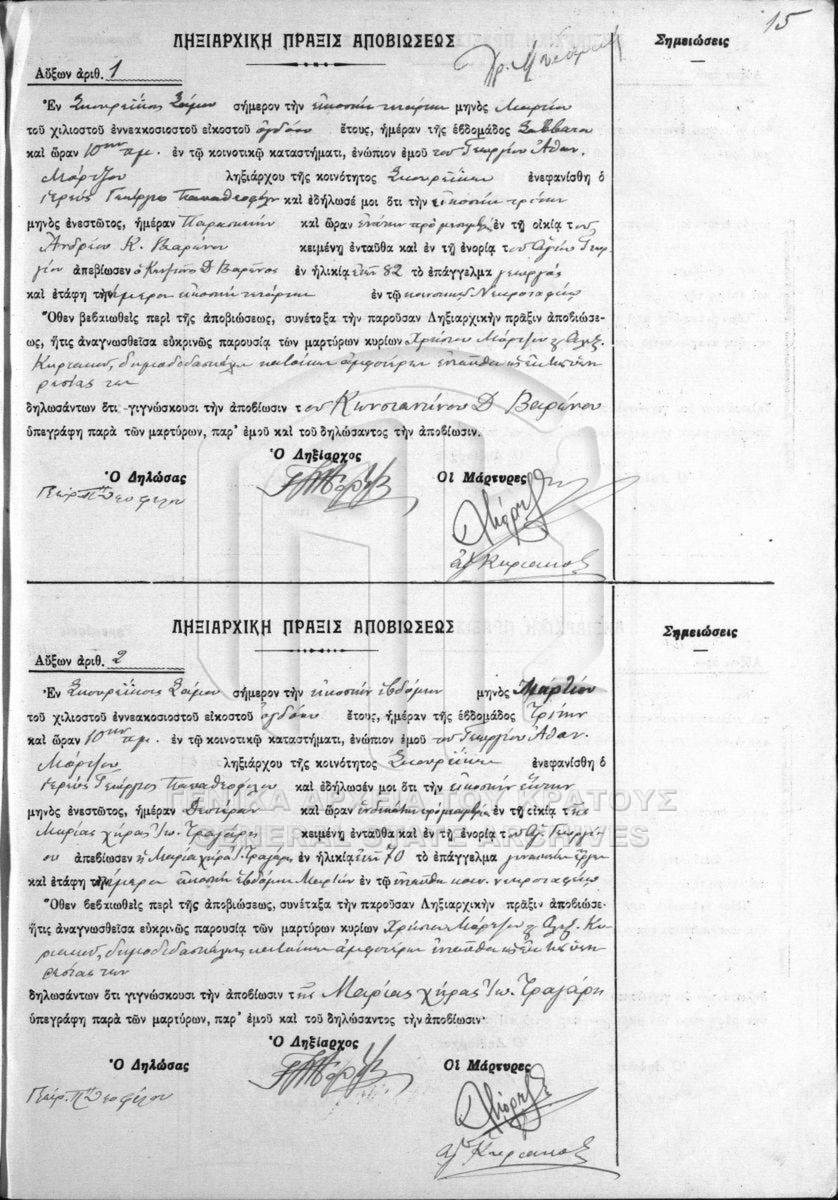 15
ΛΗΞΙΑΡΧΙΚΗ ΠΡΑΞΙΣ ΑΠΟΒΙΩΣΕΩΣ
Σημειώσεις
Αὔξων ἀριθ. 1
Ἐν Σκουρεΐκοις Σάμου σήμερον τὴν εἰκοστὴν τετάρτην μηνὸς Μαρτίου
τοῦ χιλιοστοῦ ἐννεακοσιοστοῦ εἰκοστοῦ ὀγδόου ἔτους, ἡμέραν τῆς ἑβδομάδος Σάββατον
καὶ ὥραν 10ην πμ. ἐν τῷ κοινοτικῷ καταστήματι, ἐνώπιον ἐμοῦ του Γεωργίου Ἀθαν.
Μάρτζου ληξιάρχου τῆς κοινότητος Σκουρεΐκων ἐνεφανίσθη ὁ
ἱερεὺς Γεώργιος Παπαθεοφίλου καὶ ἐδήλωσέ μοι ὅτι τὴν εἰκοστὴν τρίτην
μηνὸς ἐνεστῶτος, ἡμέραν Παρασκευὴν καὶ ὥραν ἐνάτην προ μεσημβρίας ἐν τῇ οἰκίᾳ του
Ἀνδρέου Κ. Βαρόνου κειμένῃ ἐνταῦθα καὶ ἐν τῇ ἐνορίᾳ του Ἁγίου Γεωρ-
γίου ἀπεβίωσεν ὁ Κων/τῖνος Δ Βαρόνος ἐν ἡλικίᾳ ἐτῶν 82 τὸ ἐπάγγελμα γεωργὸς
καὶ ἐτάφη τὴν ἡμέραν εἰκοστὴν τετάρτην ἐν τῷ κοινοτικῷ Νεκροταφείῳ
Ὅθεν βεβαιωθεὶς περὶ τῆς ἀποβιώσεως, συνέταξα τὴν παροῦσαν Ληξιαρχικὴν πρᾶξιν ἀποβιώσε-
ως, ἥτις ἀναγνωσθεῖσα εὐκρινῶς παρουσίᾳ τῶν μαρτύρων κυρίων Χρήστου Μάρτζου & Ἀλεξ.
Κυριακοῦ, δημοδιδασκάλου κατοίκων ἀμφοτέρων ἐνταῦθα
δηλωσάντων ὅτι γιγνώσκουσι τὴν ἀποβίωσιν του Κωνσταντίνου Δ Βαρόνου
ὑπεγράφη παρὰ τῶν μαρτύρων, παρ' ἐμοῦ καὶ τοῦ δηλώσαντος τὴν ἀποβίωσιν.
Ὁ Ληξίαρχος
Ὁ Δηλώσας
Οἱ Μάρτυρες
ΛΗΞΙΑΡΧΙΚΗ ΠΡΑΞΙΣ ΑΠΟΒΙΩΣΕΩΣ
Σημειώσεις
Αὔξων ἀριθ. 2
Ἐν Σκουρεΐκοις Σάμου σήμερον τὴν εἰκοστὴν ἑβδόμην μηνὸς Μαρτίου
τοῦ χιλιοστοῦ ἐννεακοσιοστοῦ εἰκοστοῦ ὀγδόου ἔτους, ἡμέραν τῆς ἑβδομάδος Τρίτην
καὶ ὥραν 10ην πμ. ἐν τῷ κοινοτικῷ καταστήματι, ἐνώπιον ἐμοῦ του Γεωργίου Ἀθαν.
Μάρτζου ληξιάρχου τῆς κοινότητος Σκουρεΐκων ἐνεφανίσθη ὁ
ἱερεὺς Γεώργιος Παπαθεοφίλου καὶ ἐδήλωσέν μοι ὅτι τὴν εἰκοστὴν ἕκτην
μηνὸς ἐνεστῶτος, ἡμέραν Δευτέραν καὶ ὥραν ἑνδεκάτην προμεσημβρίας ἐν τῇ οἰκίᾳ της
Μαρίας χήρας Ἰω. Τραγάρη κειμένῃ ἐνταῦθα καὶ ἐν τῇ ἐνορίᾳ του Ἁγ. Γεωργί-
ου ἀπεβίωσεν ἡ Μαρία χήρα Ἰ. Τραγάρη ἐν ἡλικίᾳ ἐτῶν 70 τὸ ἐπάγγελμα γυναικεῖα ἔργα
καὶ ἐτάφη τὴν ἡμέραν εἰκοστὴν ἑβδόμην Μαρτίου ἐν τῷ ἐνταῦθα κοιν. νεκροταφείῳ
Ὅθεν βεβαιωθεὶς περὶ τῆς ἀποβιώσεως, συνέταξα τὴν παροῦσαν Ληξιαρχικὴν πρᾶξιν ἀποβιώσε-
ἥτις ἀναγνωσθεῖσα εὐκρινῶς παρουσίᾳ τῶν μαρτύρων κυρίων Χρήστου Μάρτζου & Ἀλεξ. Κυ-
ριακοῦ, δημοδιδασκάλου κατοίκων ἀμφοτέρων ἐνταῦθα
δηλωσάντων ὅτι γιγνώσκουσι τὴν ἀποβίωσιν της Μαρίας χήρας Ἰω. Τραγάρη
ὑπεγράφη παρὰ τῶν μαρτύρων, παρ' ἐμοῦ καὶ τοῦ δηλώσαντος τὴν ἀποβίωσιν·
Ὁ Ληξίαρχος
Ὁ Δηλώσας
Οἱ Μάρτυρες
ΓΕΝΙΚΑ ΑΡΧΕΙΑ ΤΟΥ ΚΡΑΤΟΥΣ
GENERAL STATE ARCHIVES